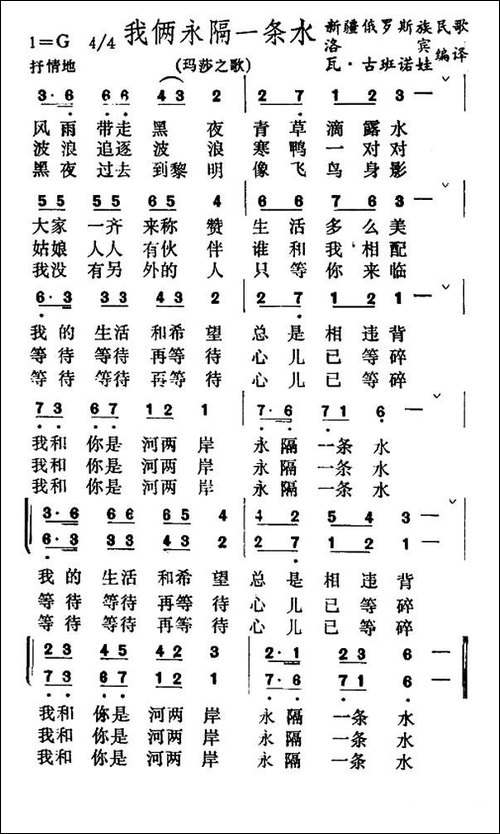 我俩永隔一条水
(玛莎之歌)
1=G 4/4
抒情地
新疆俄罗斯族民歌
洛宾编译
瓦·古班诺娃
3·6 6 6 4 3 2 2 7 2 1 2 3 —
风雨 带走 黑夜 青草 滴露水
波浪 追逐 波浪 寒鸭 一对对
黑夜 过去 到黎明 像飞鸟身影
5 5 5 5 6 5 4 6 6 7 6 3 —
大家 一齐 来称赞 生活多么美
姑娘 人人 有伙伴 谁和我相配
我没 有另 外的人 只等你来临
6·3 3 3 4 3 2 2·7 2 2 1 —
我的 生活 和希望 总是相违背
等待 等待 再等待 心儿已等碎
等待 等待 再等待 心儿已等碎
7 3 6 7 1 2 1 7·6 7 1 6 —
我和 你是 河两岸 永隔一条水
我和 你是 河两岸 永隔一条水
我和 你是 河两岸 永隔一条水
3·6 6 6 6 5 4 4 2 5 4 3 —
6·3 3 3 4 3 2 2 7 2 2 1 —
我的 生活 和希望 总是相违背
等待 等待 再等待 心儿已等碎
等待 等待 再等待 心儿已等碎
2 3 4 5 4 2 3 2·1 2 3 6 —
7 3 6 7 1 2 1 7·6 7 1 6 —
我和 你是 河两岸 永隔一条水
我和 你是 河两岸 永隔一条水
我和 你是 河两岸 永隔一条水